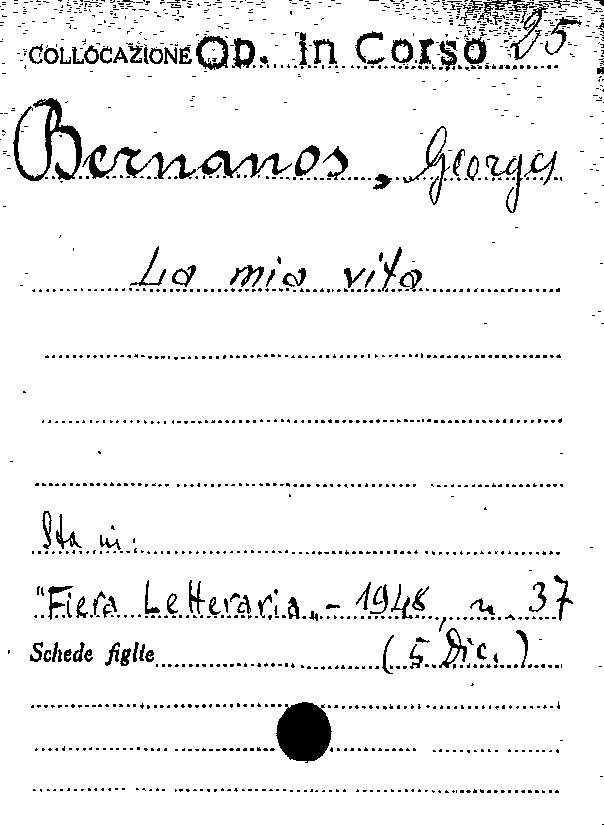 COLLOCAZIONE Op. in Corso 25
Bernanos, Georges
La mia vita
Sta in:
"Fiera Letteraria„ - 1948, n. 37
Schede figlie (5 Dic.)